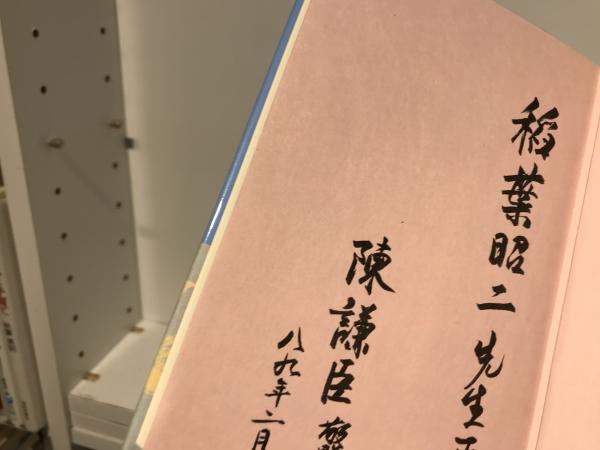 稻葉昭二先生
陳謙臣
八九年二月